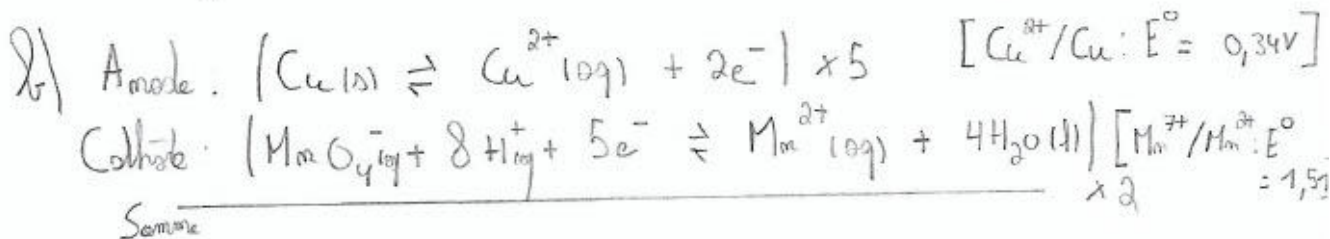 b) Anode : (Cu(s) ⇌ Cu²⁺(aq) + 2e⁻) ×5 [Cu²⁺/Cu : E⁰ = 0,34V]
Cathode : (MnO₄⁻(aq) + 8H⁺(aq) + 5e⁻ ⇌ Mn²⁺(aq) + 4H₂O(l)) ×2 [Mn⁷⁺/Mn²⁺ : E⁰ = 1,51
Somme